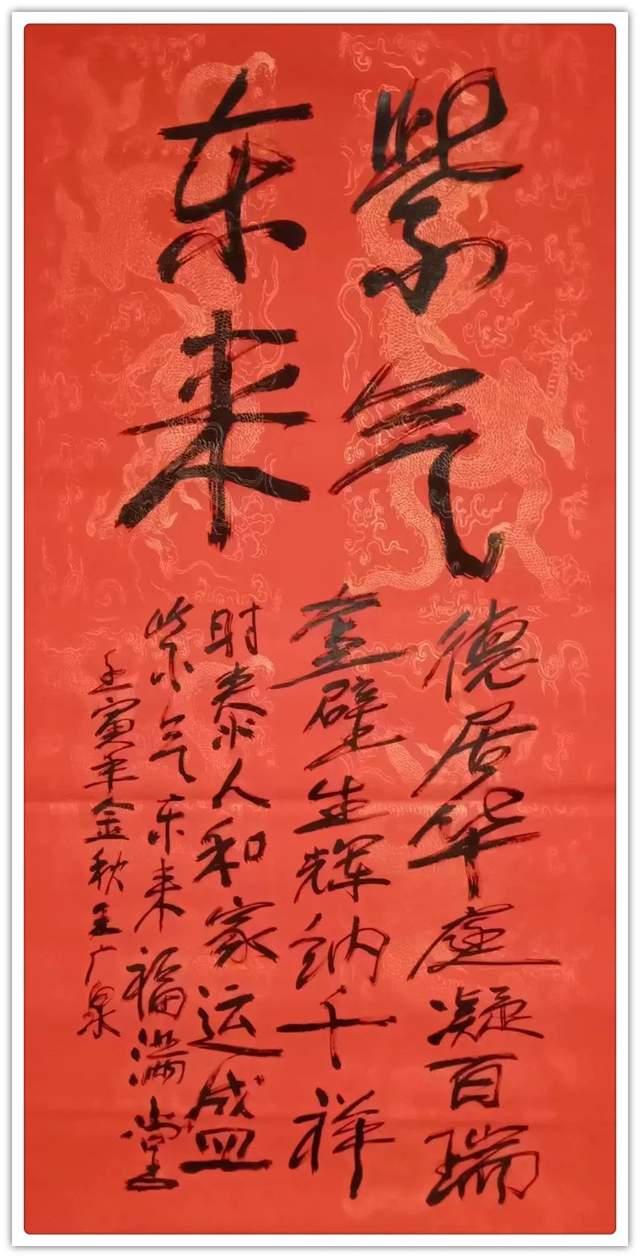 紫气
东来
德居华庭凝百瑞
堂壁生辉纳千祥
时泰人和家运盛
紫气东来福满堂
壬寅年金秋王广泉